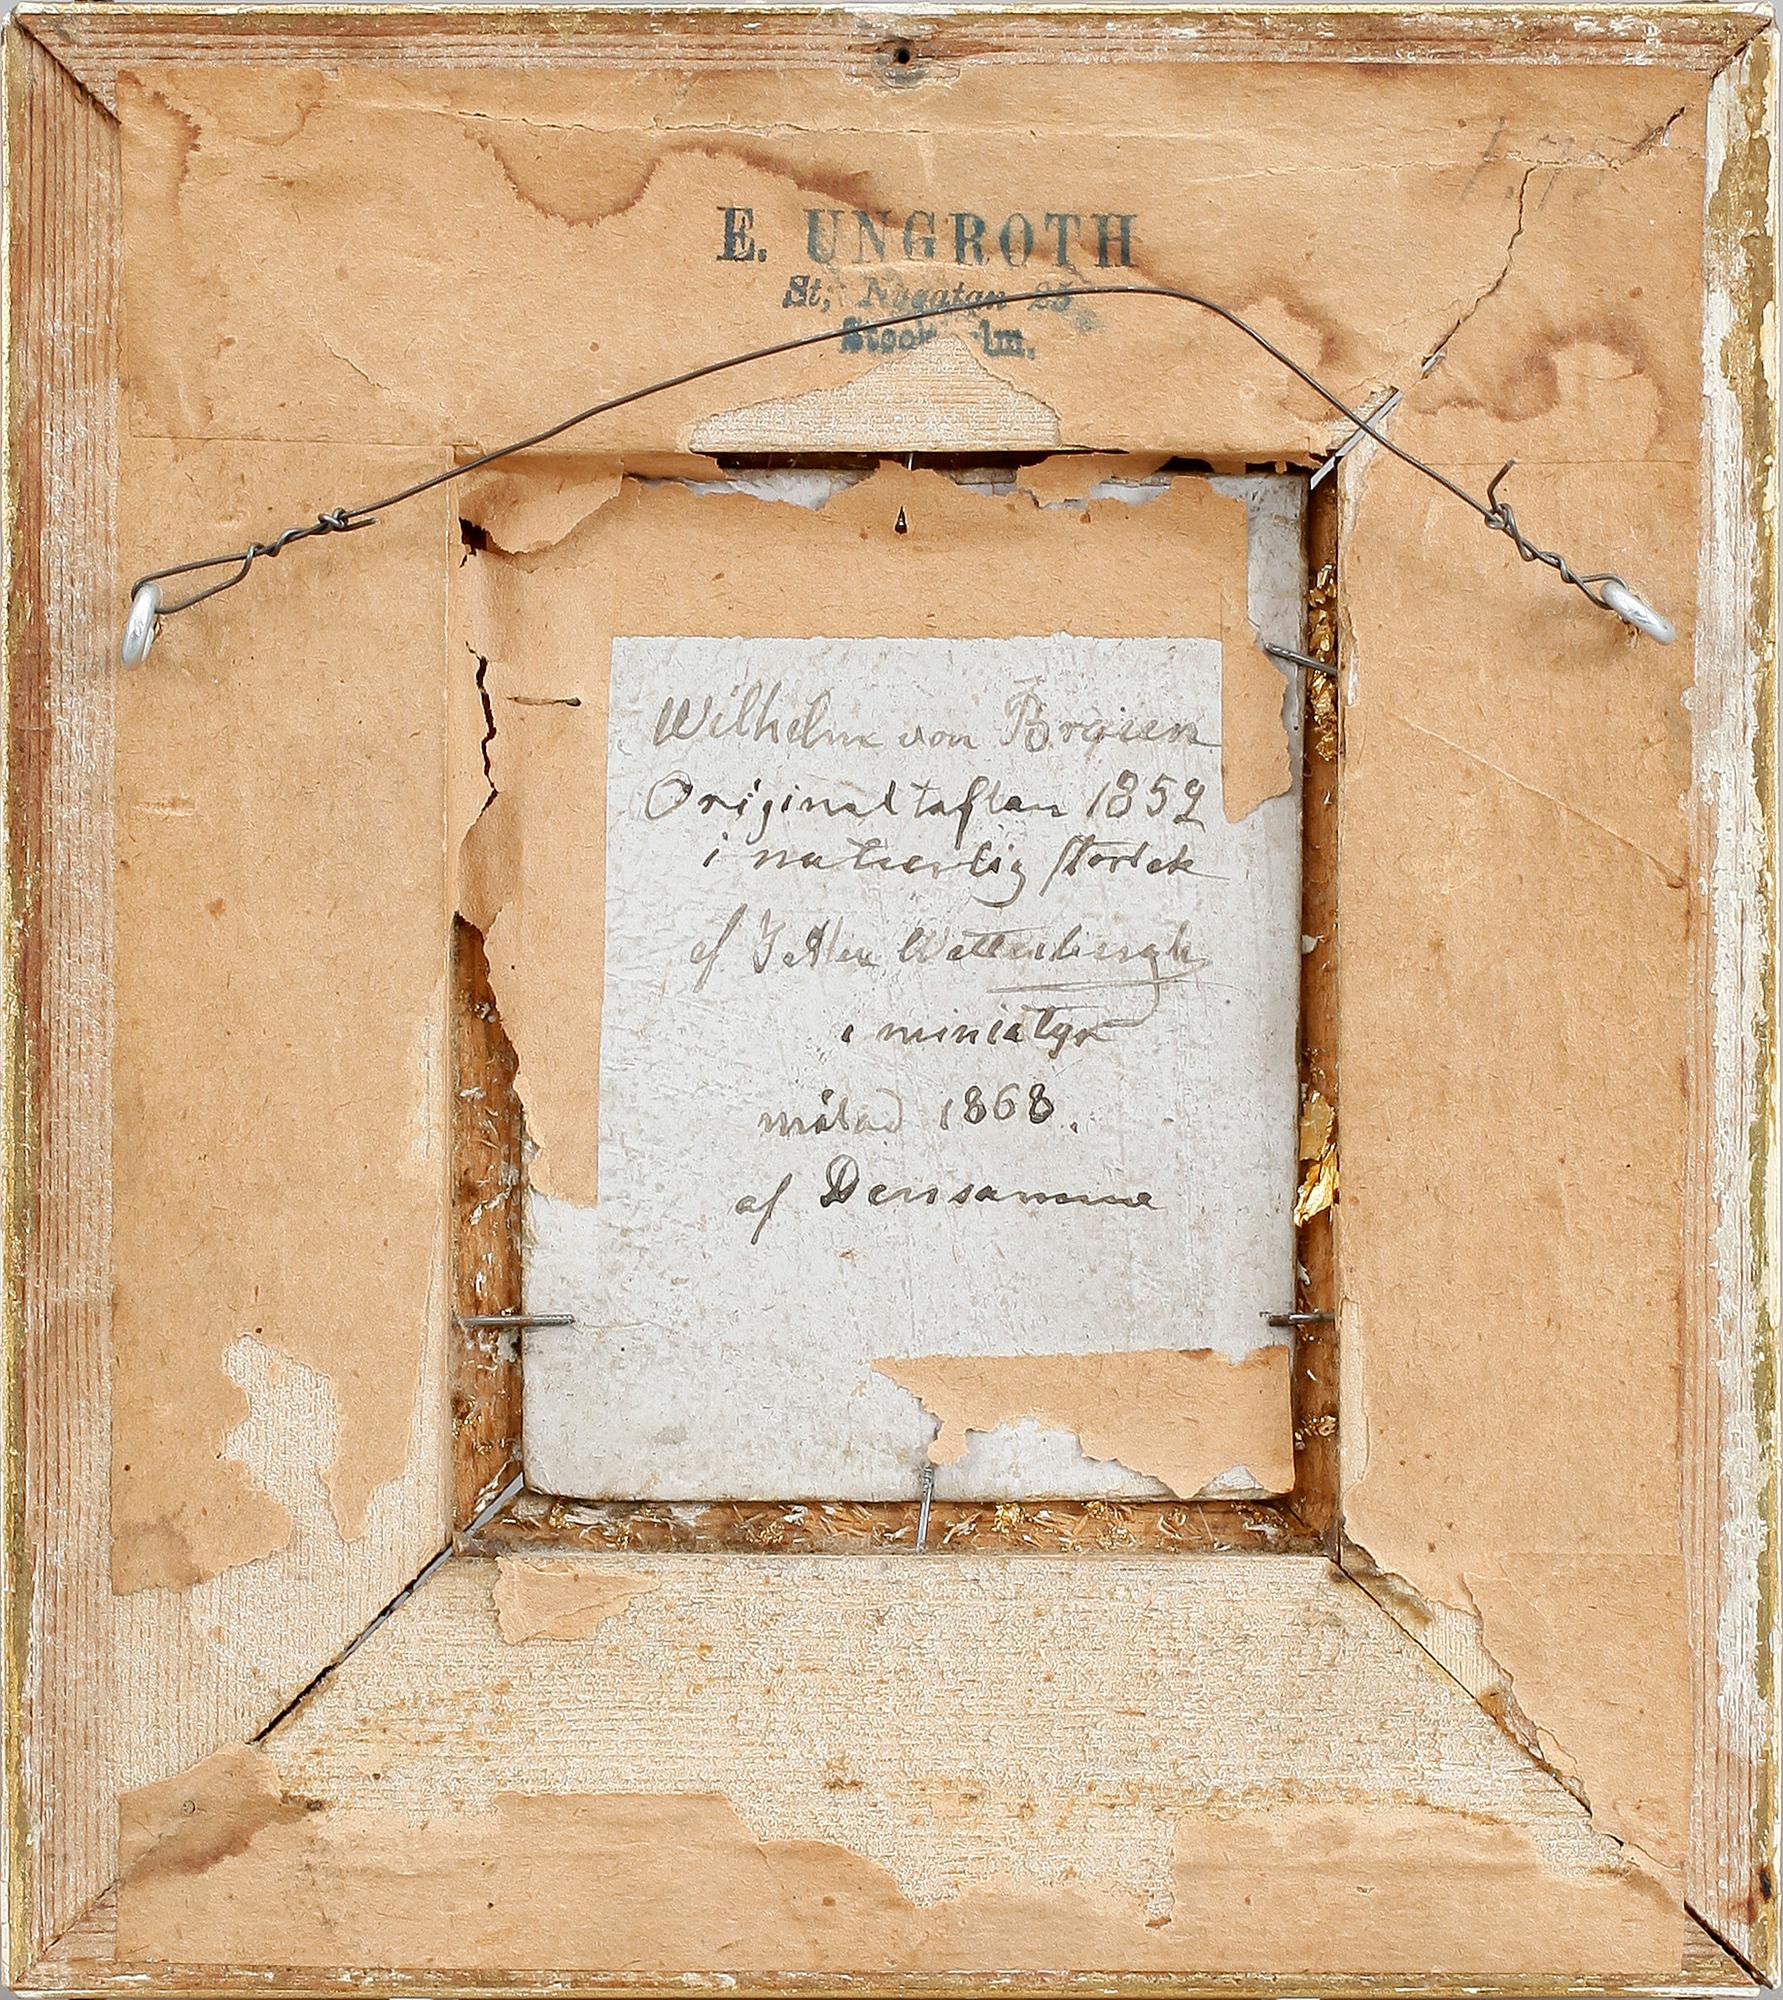 E. UNGROTH
St, Nygatan 25
Stockholm.
Wilhelm von Braun
Originaltaflan 1852
i naturlig storlek
af J Alex Wetterbergh
i miniatyr
målad 1868.
af Densamme